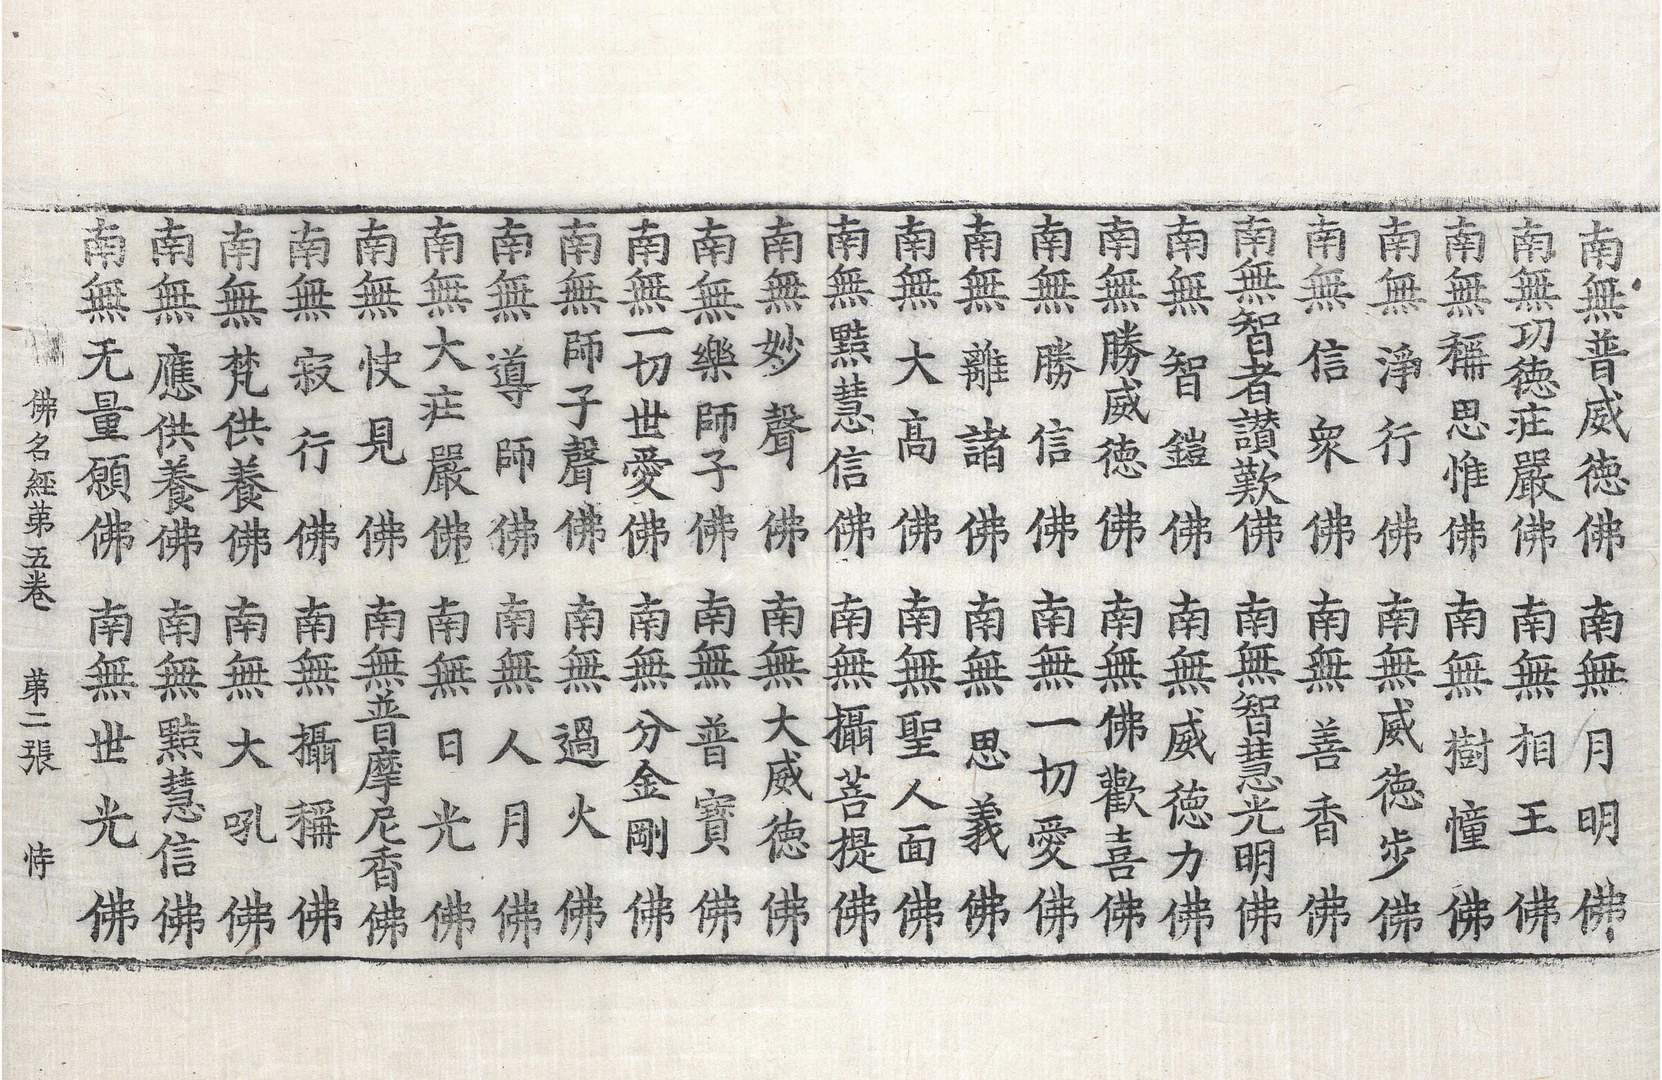 南無普威德佛 南無月明佛
南無功德庄嚴佛 南無相王佛
南無稱思惟佛 南無樹幢佛
南無淨行佛 南無威德步佛
南無信衆佛 南無善香佛
南無智者讃歎佛 南無智慧光明佛
南無智鎧佛 南無威德力佛
南無勝威德佛 南無佛歡喜佛
南無勝信佛 南無一切愛佛
南無離諸佛 南無思義佛
南無大高佛 南無聖人面佛
南無黠慧信佛 南無攝菩提佛
南無妙聲佛 南無大威德佛
南無樂師子佛 南無普寶佛
南無一切世愛佛 南無分金剛佛
南無師子聲佛 南無過火佛
南無導師佛 南無人月佛
南無大庄嚴佛 南無日光佛
南無快見佛 南無普摩尼香佛
南無寂行佛 南無攝稱佛
南無梵供養佛 南無大吼佛
南無應供養佛 南無黠慧信佛
南無无量願佛 南無世光佛
佛名經第五卷 第二張 恃